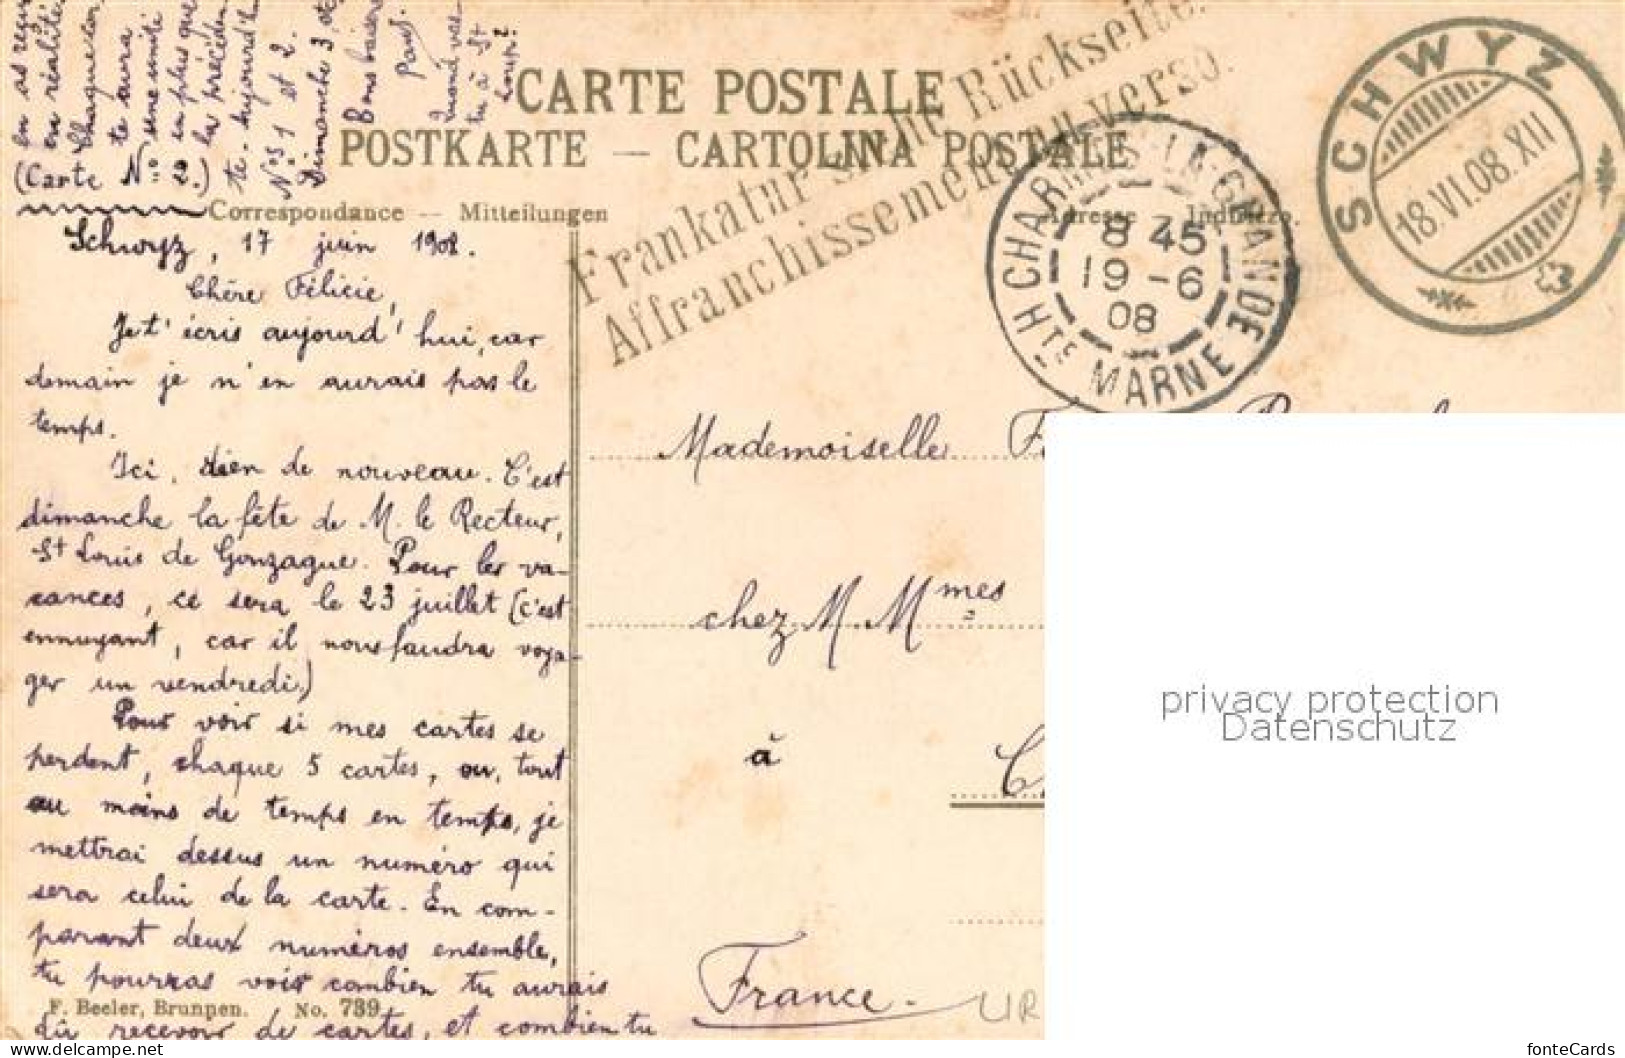 CARTE POSTALE
POSTKARTE — CARTOLINA POSTALE
Correspondance — Mitteilungen
Adresse Indirizzo.
Frankatur siehe Rückseite.
Affranchissement au verso.
SCHWYZ
18.VI.08.XII
CHARMES-LA-GRANDE
8 45
19 -6
08
HTE MARNE
(Carte No 2.)
Schwyz, 17 juin 1908.
Chère Félicie,
Je t'écris aujourd'hui, car
demain je n'en aurais pas le
temps.
Ici, rien de nouveau. C'est
dimanche la fête de M. le Recteur,
St Louis de Gonzague. Pour les va-
cances, ce sera le 23 juillet (c'est
ennuyant, car il nous faudra voya-
ger un vendredi.)
Pour voir si mes cartes se
perdent, chaque 5 cartes, ou, tout
au moins de temps en temps, je
mettrai dessus un numéro qui
sera celui de la carte. En com-
parant deux numéros ensemble,
tu pourras voir combien tu aurais
dû recevoir de cartes, et combien tu
en as reçu
en réalité.
Chaque
te aura
une unité
en plus que
la précéden-
te. Aujourd'h
Nos 1 et 2.
Dimanche 3 etc
Bons baisers
Paul.
Quand vas-
tu à St
Loup?
F. Beeler, Brunnen. No. 739
Mademoiselle
chez M. Mmes
à
France.
UR
privacy protection
Datenschutz
fonteCards